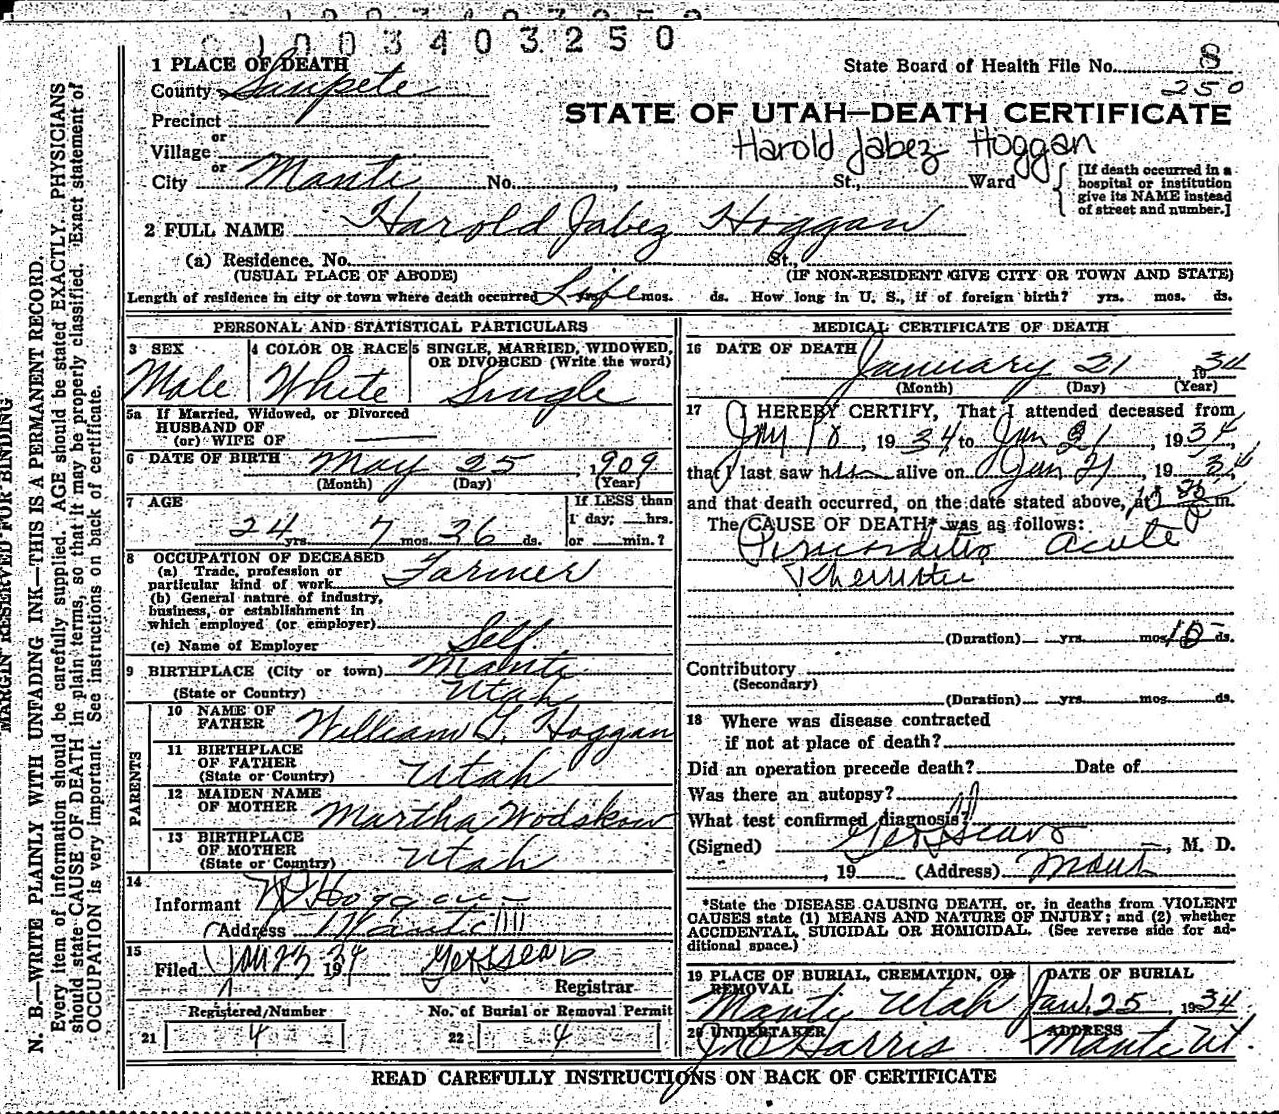 0100340 3250
1 PLACE OF DEATH
State Board of Health File No. 8
250
County Sanpete
STATE OF UTAH—DEATH CERTIFICATE
Precinct
or
Harold Jabez Hoggan
Village
or
City Manti No. , St., Ward
[If death occurred in a
hospital or institution
give its NAME instead
of street and number.]
2 FULL NAME Harold Jabez Hoggan
(a) Residence, No. St.,
(USUAL PLACE OF ABODE) (IF NON-RESIDENT GIVE CITY OR TOWN AND STATE)
Length of residence in city or town where death occurred Life mos. ds. How long in U. S., if of foreign birth? yrs. mos. ds.
PERSONAL AND STATISTICAL PARTICULARS
3 SEX 4 COLOR OR RACE 5 SINGLE, MARRIED, WIDOWED,
OR DIVORCED (Write the word)
Male White Single
5a If Married, Widowed, or Divorced
HUSBAND OF
(or) WIFE OF
6 DATE OF BIRTH May 25, 1909
(Month) (Day) (Year)
7 AGE If LESS than
1 day; hrs.
24 yrs. 7 mos. 26 ds. or min.?
8 OCCUPATION OF DECEASED
(a) Trade, profession or
particular kind of work Farmer
(b) General nature of industry,
business, or establishment in
which employed (or employer)
(c) Name of Employer Self
9 BIRTHPLACE (City or town) Manti
(State or Country) Utah
PARENTS
10 NAME OF
FATHER William G. Hoggan
11 BIRTHPLACE
OF FATHER
(State or Country) Utah
12 MAIDEN NAME
OF MOTHER Martha Wodskow
13 BIRTHPLACE
OF MOTHER
(State or Country) Utah
14
Informant Hoggan
(Address Manti
15
Filed Jan 23 1934
Registrar
Registered Number No. of Burial or Removal Permit
21 4 22 4
MEDICAL CERTIFICATE OF DEATH
16 DATE OF DEATH January 21 1934
(Month) (Day) (Year)
17 I HEREBY CERTIFY, That I attended deceased from
18, 1934 to Jan 21, 1934,
that I last saw h alive on Jan 21, 1934
and that death occurred, on the date stated above, at m.
The CAUSE OF DEATH* was as follows:
Acute
(Duration) yrs. mos. ds.
Contributory
(Secondary)
(Duration) yrs. mos. ds.
18 Where was disease contracted
if not at place of death?
Did an operation precede death? Date of
Was there an autopsy?
What test confirmed diagnosis?
(Signed) , M. D.
, 19 (Address)
*State the DISEASE CAUSING DEATH, or, in deaths from VIOLENT
CAUSES state (1) MEANS AND NATURE OF INJURY; and (2) whether
ACCIDENTAL, SUICIDAL OR HOMICIDAL. (See reverse side for ad-
ditional space.)
19 PLACE OF BURIAL, CREMATION, OR
REMOVAL
DATE OF BURIAL
Manti Utah Jan. 25 1934
20 UNDERTAKER ADDRESS
Harris Manti Ut.
READ CAREFULLY INSTRUCTIONS ON BACK OF CERTIFICATE
MARGIN RESERVED FOR BINDING
N. B.—WRITE PLAINLY WITH UNFADING INK—THIS IS A PERMANENT RECORD.
Every item of information should be carefully supplied. AGE should be stated EXACTLY. PHYSICIANS
should state CAUSE OF DEATH in plain terms, so that it may be properly classified. Exact statement of
OCCUPATION is very important. See instructions on back of certificate.